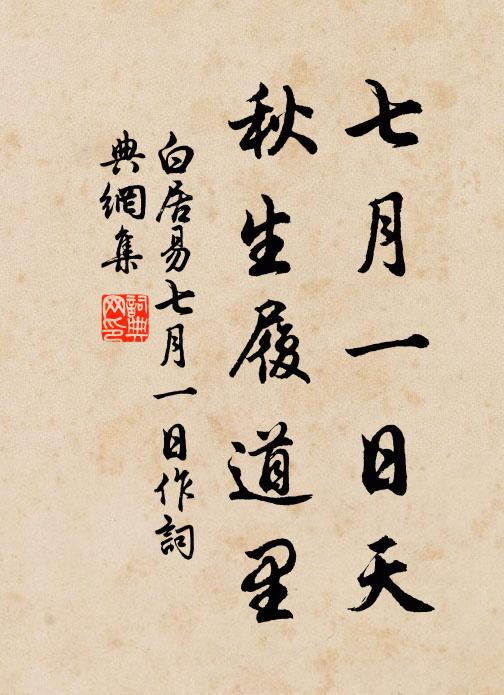 七月一日天
秋生履道里
白居易七月一日作詞
典網集
詞典網印